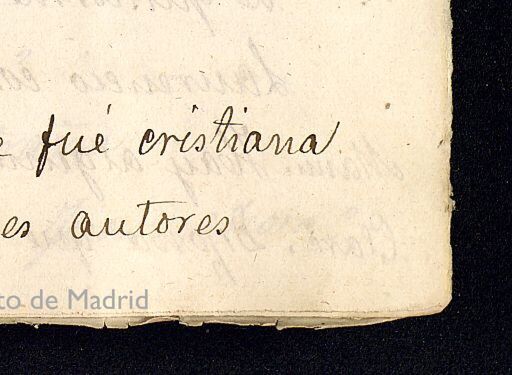 fué cristiana
es autores
to de Madrid